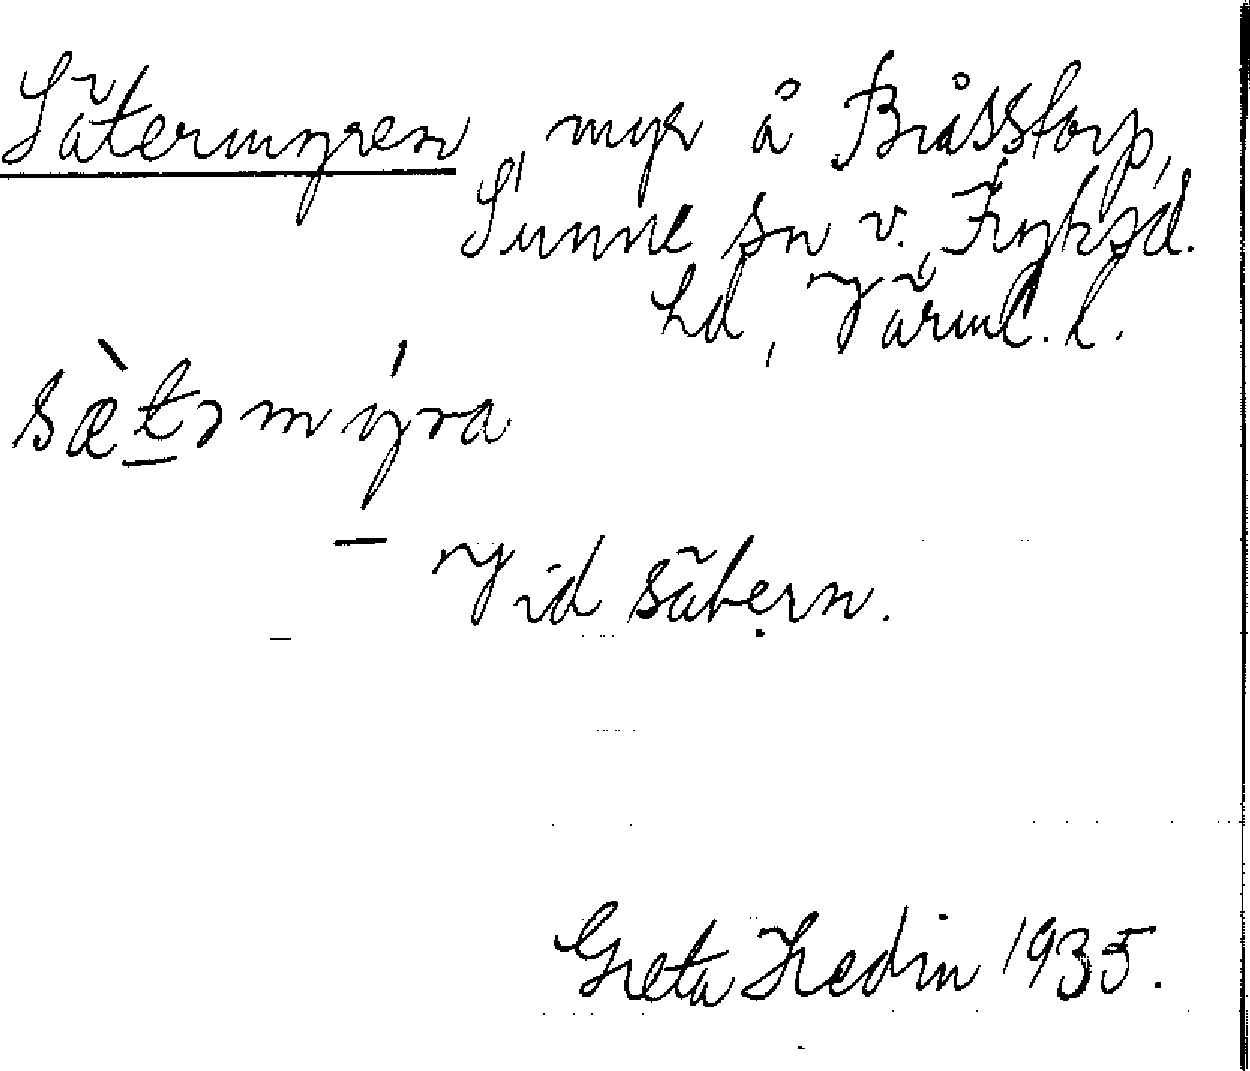 Sätermyren, myr å Bråsstorp,
Sunne sn v. Fryksd.
hd, Värml. l.
sæ̀tərmýra
Vid sätern.
Greta Hedin 1935.